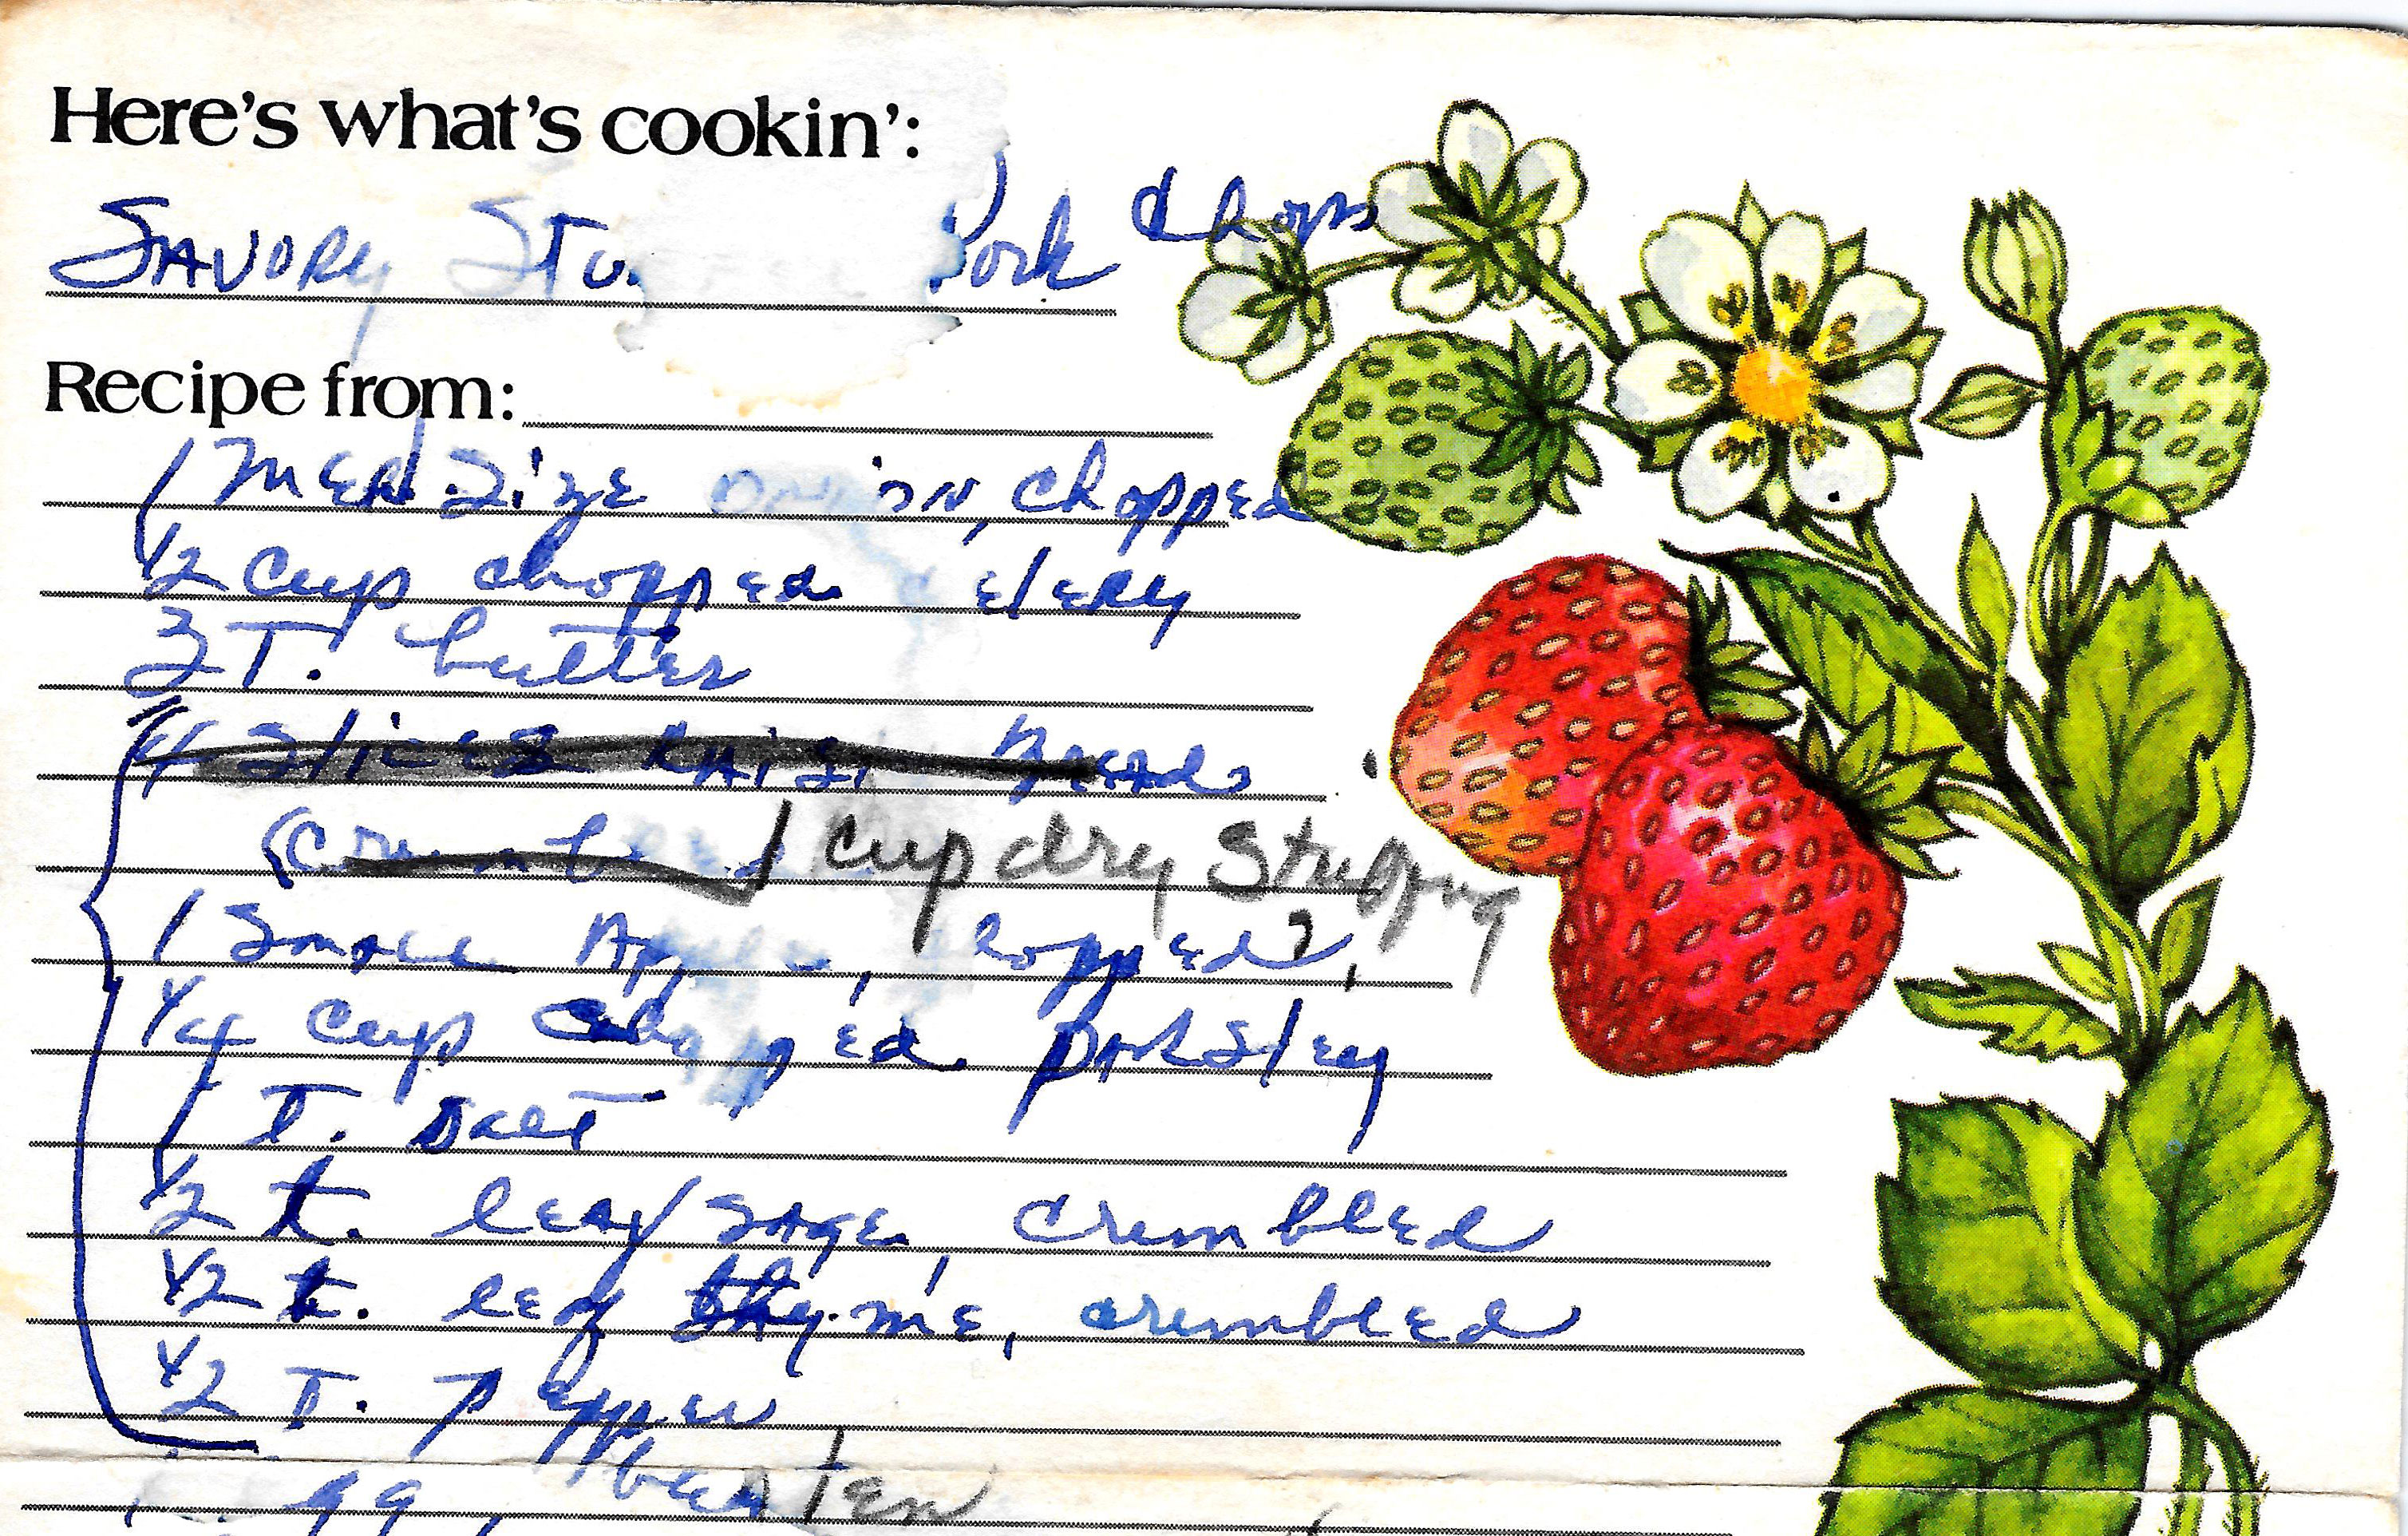 Here's what's cookin':
Savory Stu Pork Chops
Recipe from:
1 Med. Size Onion, Chopped
1/2 Cup chopped celery
3 T. butter
4 Slices Raisin Breads
(Crumbled 1 Cup dry Stuffing
1 Small Apple, chopped,
1/4 Cup Chopped parsley
1 T. Salt
1/2 t. leaf Sage, crumbled
1/2 t. leaf thyme, crumbled
1/2 T. Pepper
1 egg, beaten